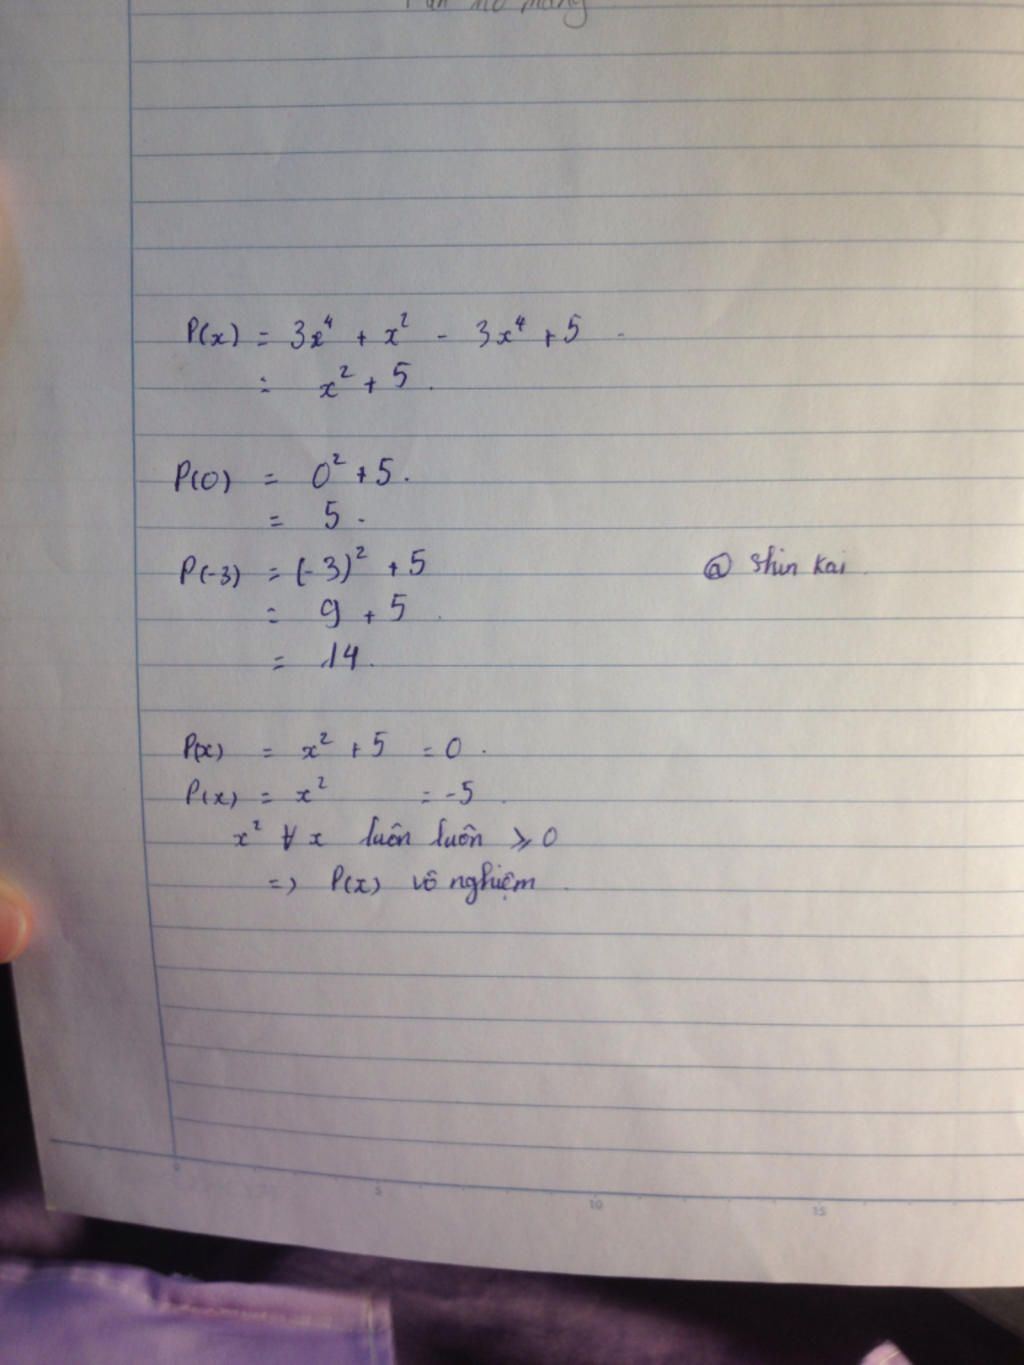 P(x) = 3x⁴ + x² - 3x⁴ + 5 .
= x² + 5 .
P(0) = 0² + 5 .
= 5 .
P(-3) = (-3)² + 5
@ Shin Kai .
= 9 + 5 .
= 14 .
P(x) = x² + 5 = 0 .
P(x) = x² = -5 .
x² ∀ x luôn luôn ⩾ 0
=> P(x) vô nghiệm .
0 5 10 15